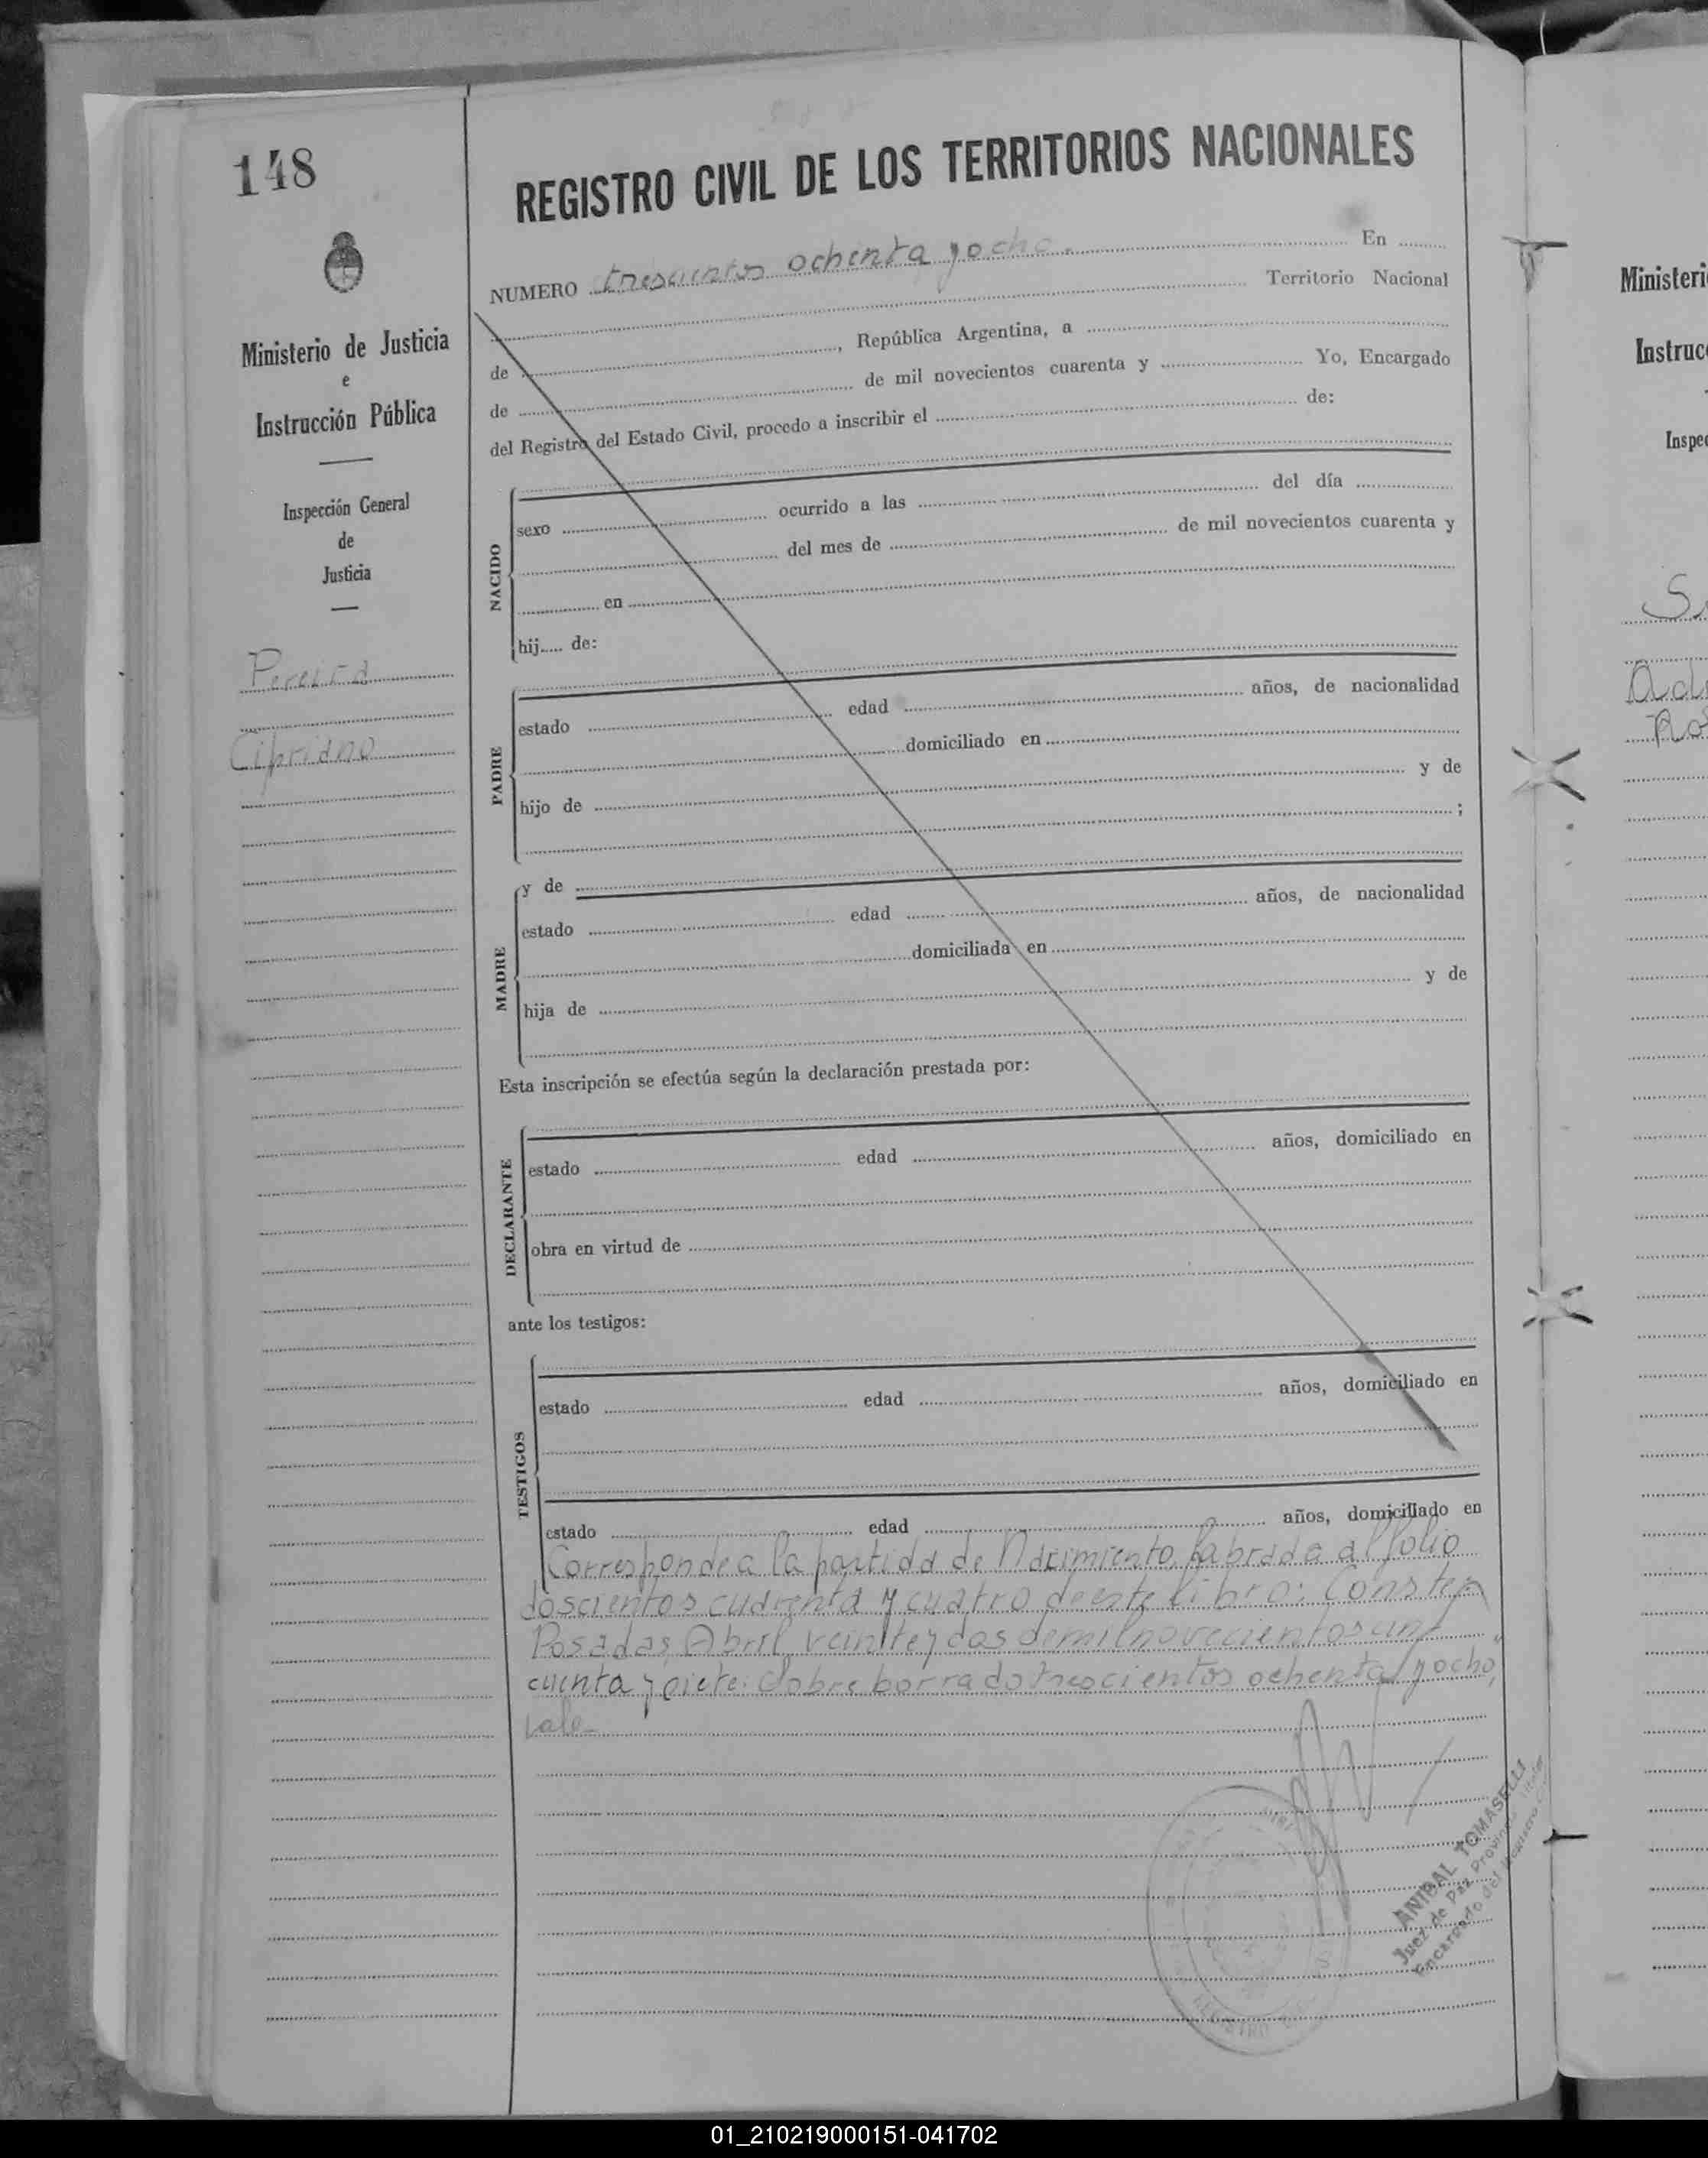 148
REGISTRO CIVIL DE LOS TERRITORIOS NACIONALES
NUMERO trescientos ochenta y ocho. En
Territorio Nacional
de , República Argentina, a
de de mil novecientos cuarenta y Yo, Encargado
del Registro del Estado Civil, procedo a inscribir el de:
Ministerio de Justicia
e
Instrucción Pública
Inspección General
de
Justicia
Pereira
Cipriano
NACIDO
sexo ocurrido a las del día
del mes de de mil novecientos cuarenta y
en
hij..... de:
PADRE
estado edad años, de nacionalidad
domiciliado en
hijo de y de
;
MADRE
y de
estado edad años, de nacionalidad
domiciliada en
hija de y de
Esta inscripción se efectúa según la declaración prestada por:
DECLARANTE
estado edad años, domiciliado en
obra en virtud de
ante los testigos:
TESTIGOS
estado edad años, domiciliado en
estado edad años, domiciliado en
Corresponde a la partida de Nacimiento, labrada al folio
doscientos cuarenta y cuatro de este libro: Conste
Posadas, Abril veinte y dos de mil novecientos cin
cuenta y siete. Sobre borrado trescientos ochenta y ocho,
vale-
ANIBAL TOMASELLI
Juez de Paz
Encargado del Registro
Ministeri
Instruc
Inspe
01_210219000151-041702